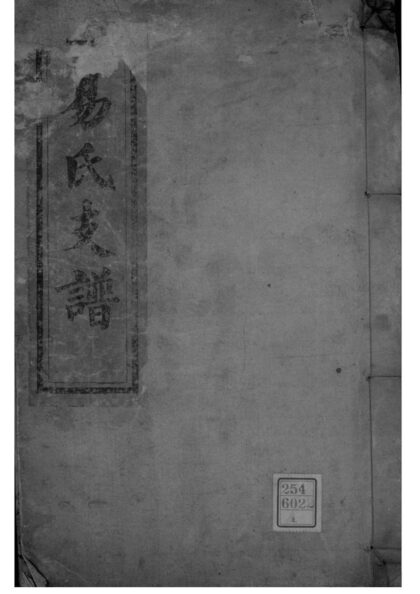 易氏支譜
254
6022
1